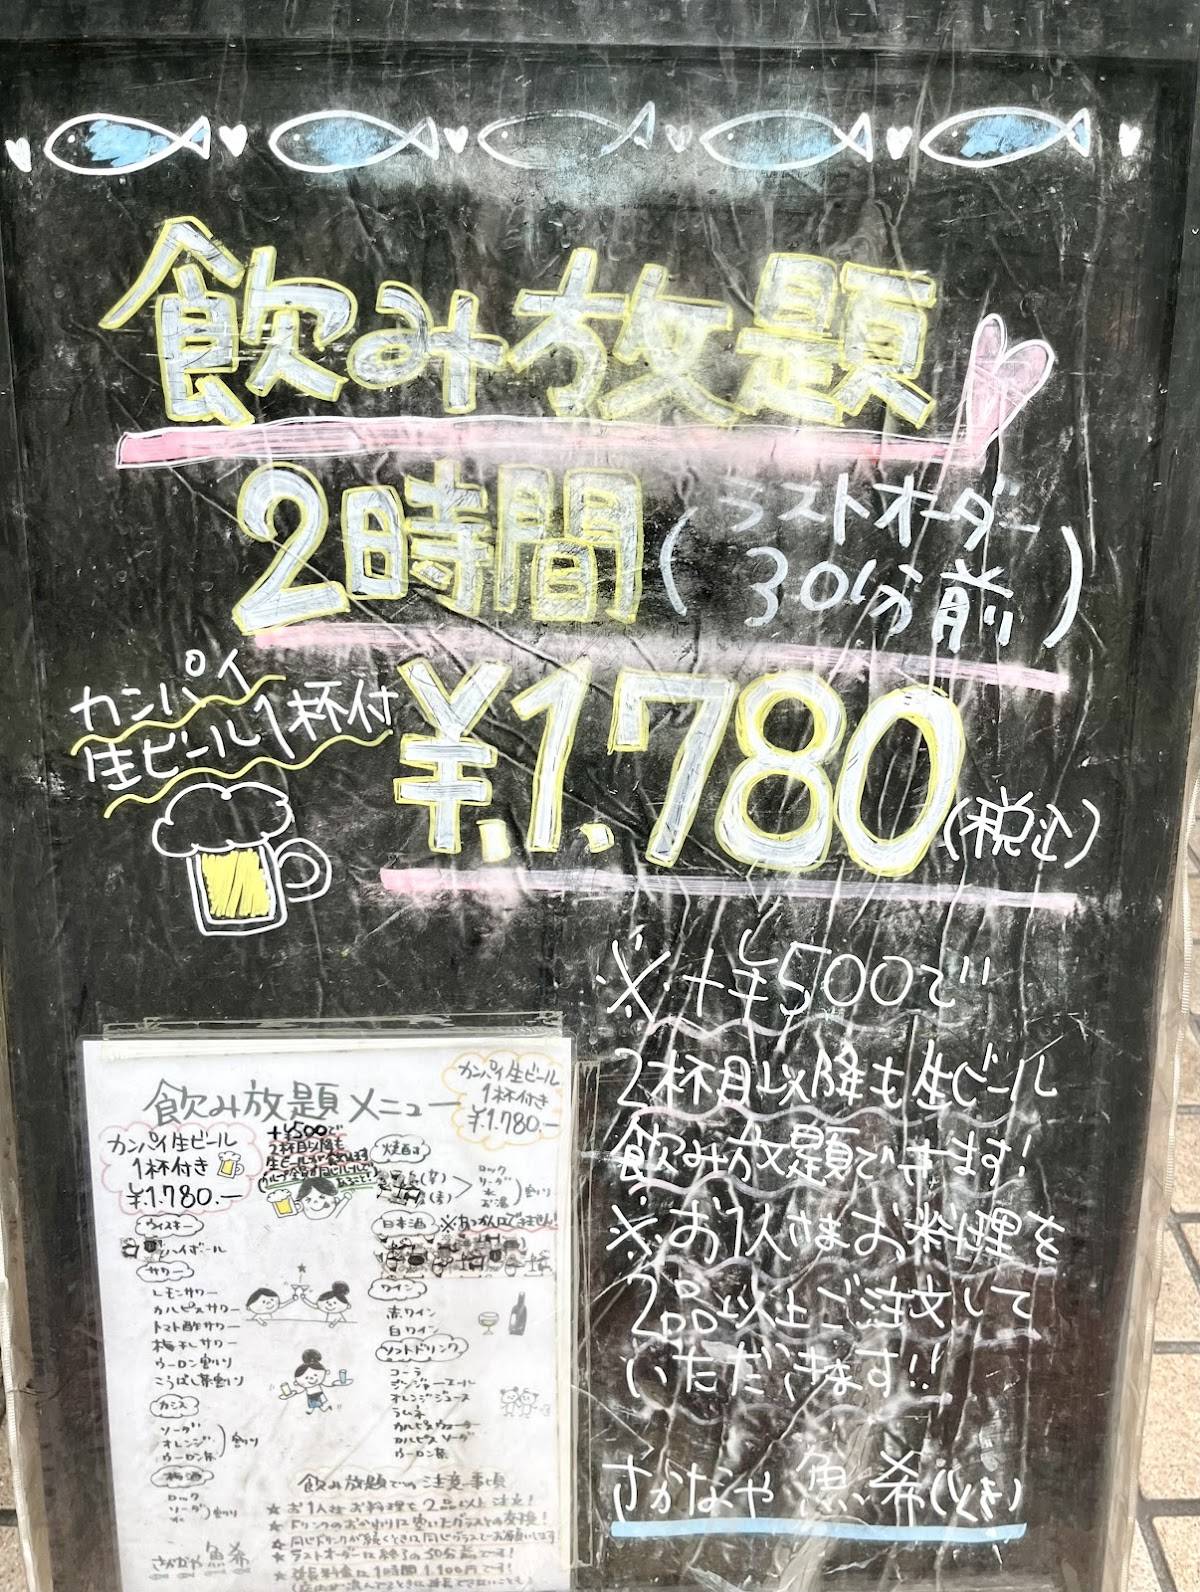 飲み放題
2時間
(ラストオーダー
30分前)
カンパイ
生ビール1杯付
¥1.780
(税込)
※+¥500で
2杯目以降も生ビール
飲み放題できます!
※お1人さまお料理を
2品以上ご注文して
いただきます!!
さかなや 魚希(とき)
飲み放題メニュー
カンパイ生ビール
1杯付き
¥1.780.ー
カンパイ生ビール
1杯付き
¥1.780.ー
+¥500で
2杯目以降も
ウィスキー
ハイボール
サワー
レモンサワー
カルピスサワー
トマト酢サワー
梅干しサワー
ウーロン割り
こうばし茶割り
カシス
ソーダ
オレンジ
ウーロン茶
割り
梅酒
ロック
ソーダ
水
割り
さかなや 魚希
焼酎
ロック
ソーダ
水
お湯
割り
日本酒
ワイン
赤ワイン
白ワイン
ソフトドリンク
コーラ
ジンジャーエール
オレンジジュース
ラムネ
カルピスウォーター
カルピスソーダ
ウーロン茶
飲み放題での注意事項
★お1人さまお料理を2品以上注文!
★ドリンクのおかわりは空いたグラスとの交換!
★同じドリンクが続くときは同じグラスでお願いします!
★ラストオーダーは終了の30分前です!
★延長料金は1時間1.100円です!